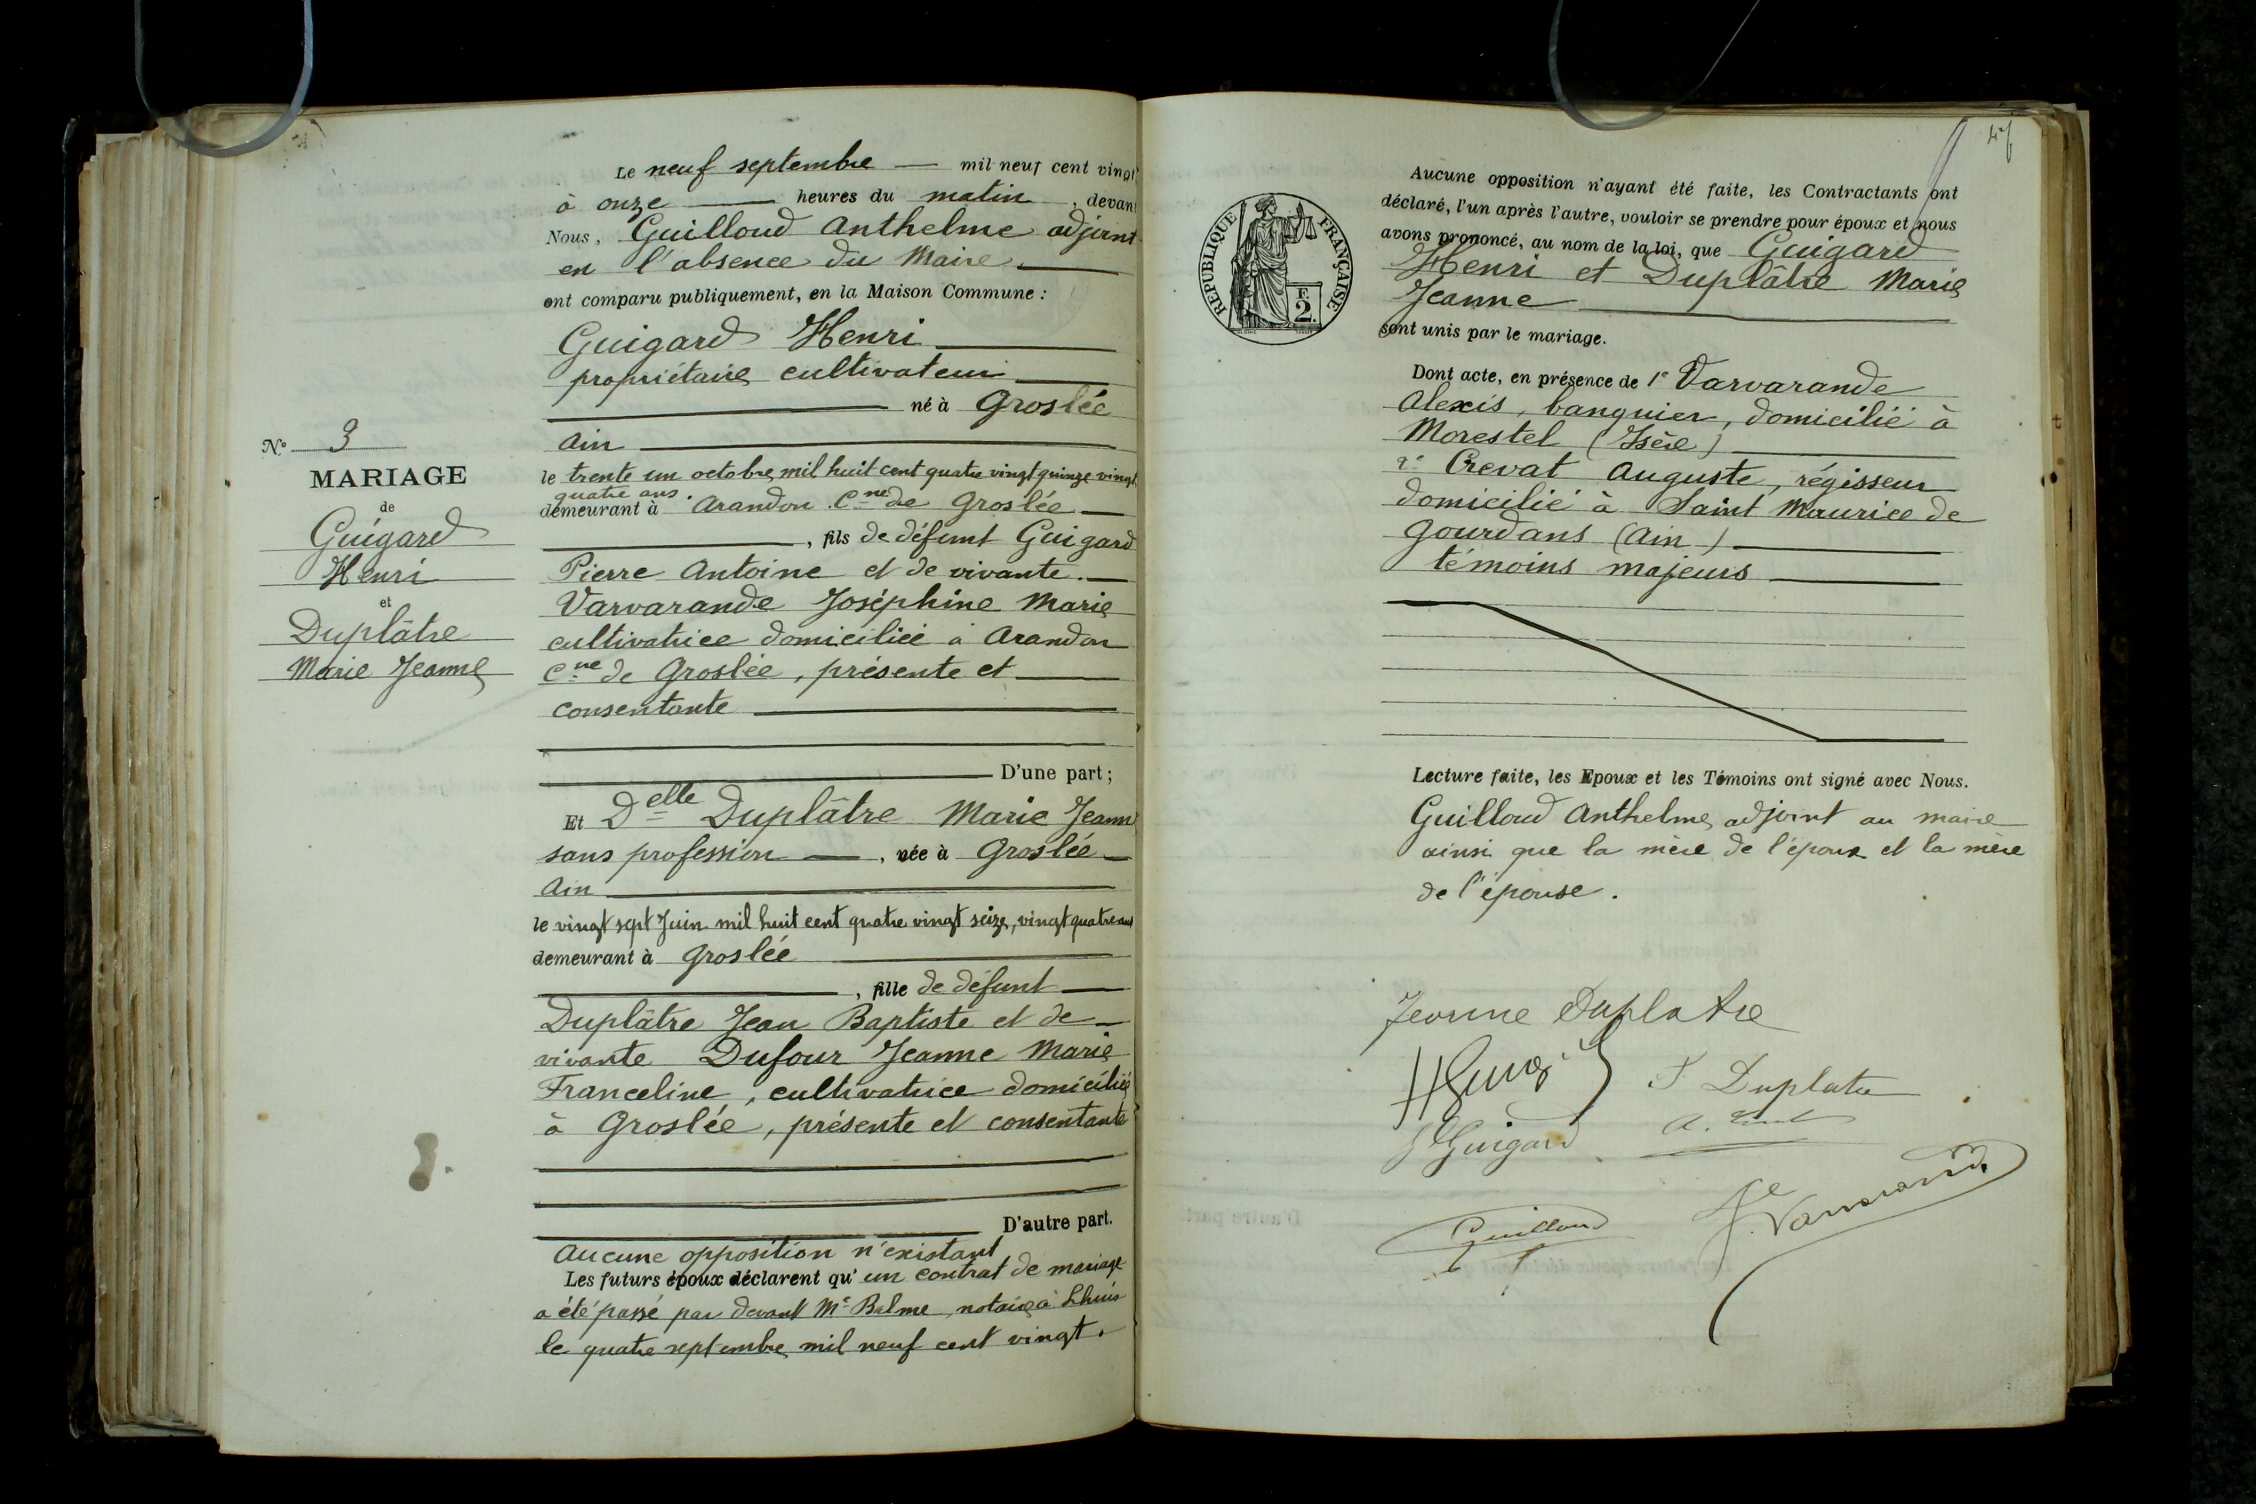 Le neuf septembre — mil neuf cent vingt
à onze — heures du matin, devant
Nous, Guilloud Anthelme adjoint
en l'absence du Maire
ont comparu publiquement, en la Maison Commune :
Guigard Henri
propriétaire cultivateur
né à Groslée
Ain
le trente un octobre mil huit cent quatre vingt quinze vingt
quatre ans.
demeurant à Arandon Cne de Groslée
, fils de défunt Guigard
Pierre Antoine et de vivante.
Varvarande Joséphine Marie
cultivatrice domiciliée à Arandon
Cne de Groslée, présente et
consentante
D'une part ;
Et Delle Duplâtre Marie Jeanne
sans profession —, née à Groslée
Ain
le vingt sept Juin mil huit cent quatre vingt seize, vingt quatre ans
demeurant à Groslée
, fille de défunt
Duplâtre Jean Baptiste et de
vivante Dufour Jeanne Marie
Franceline, cultivatrice domiciliée
à Groslée, présente et consentante
D'autre part.
Aucune opposition n'existant
Les futurs époux déclarent qu'un contrat de mariage
a été passé par devant Me Balme, notaire à Lhuis
le quatre septembre mil neuf cent vingt.
N° 3
MARIAGE
de
Guigard
Henri
et
Duplâtre
Marie Jeanne
RÉPUBLIQUE FRANÇAISE
F.
2.
Aucune opposition n'ayant été faite, les Contractants ont
déclaré, l'un après l'autre, vouloir se prendre pour époux et nous
avons prononcé, au nom de la loi, que Guigard
Henri et Duplâtre Marie
Jeanne
sont unis par le mariage.
Dont acte, en présence de 1° Varvarande
Alexis, banquier, domicilié à
Morestel (Isère)
2° Crevat Auguste, régisseur
domicilié à Saint Maurice de
Gourdans (Ain)
témoins majeurs
Lecture faite, les Epoux et les Témoins ont signé avec Nous.
Guilloud Anthelme adjoint au maire
ainsi que la mère de l'époux et la mère
de l'épouse.
Jeanne Duplatre
Duplatre
Guigard
Guilloud
Varvarande